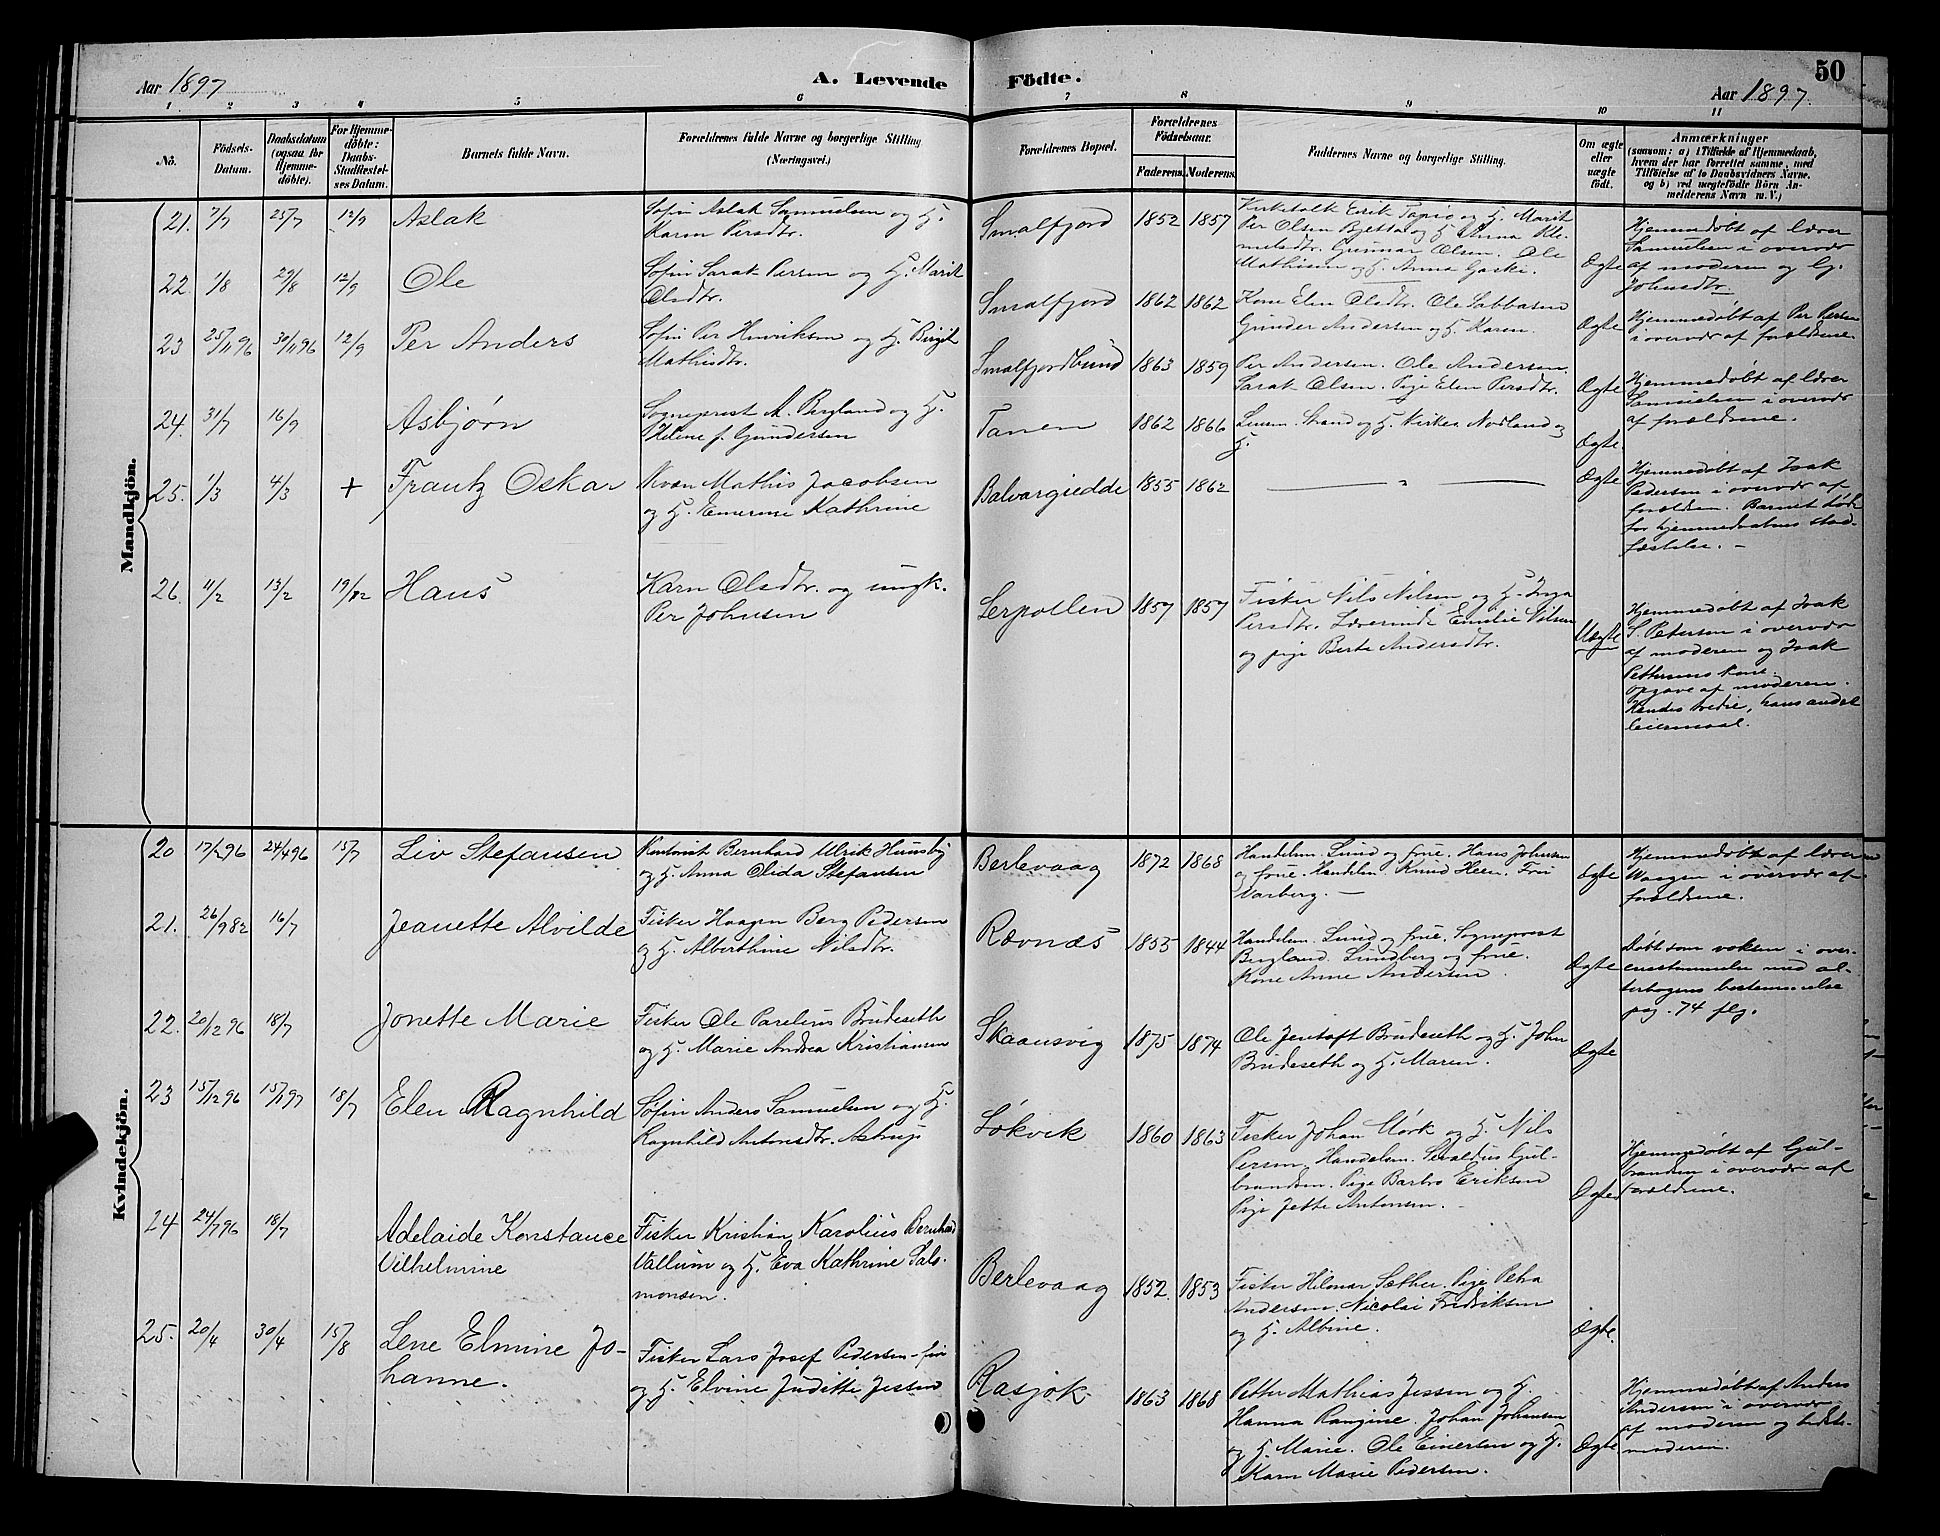 Aar 1897
A. Levende Födte.
Aar 1897.
50
1 2 3 4 5 6 7 8 9 10 11
No.
Födsels-
Datum.
Daabsdatum
(ogsaa for
Hjemme-
döbte).
For Hjemme-
döbte:
Daabs-
Stadfæstel-
ses Datum.
Barnets fulde Navn.
Forældrenes fulde Navne og borgerlige Stilling
(Næringsvei.)
Forældrenes Bopæl.
Forældrenes
Födselsaar.
Faderens. Moderens.
Faddernes Navne og borgerlige Stilling.
Om ægte
eller
uægte
födt.
Anmærkninger
(saasom: a) i Tilfælde af Hjemmedaab,
hvem der har forrettet samme, med
Tilföielse af to Daabsvidners Navne.
og b) ved uægtefödte Börn An-
melderens Navn m. V.)
Mandkjön.
21. 7/7 25/7 12/9 Aslak
Søfin Aslak Samuelsen og H.
Karen Persdtr.
Smalfjord 1852 1857
Kirketolk Erik Tapio og H. Marit
Per Olsen Bjetta og H. Anna Kle-
metsdtr. Gunnar Olsen. Ole
Mathisen og H. Anna Gaske.
Ægte
Hjemmedøbt af lærer
Samuelsen i overvær
af moderen og G.
Johnsdtr.
22. 1/8 29/8 12/9 Ole
Søfin Sarak Persen og H. Marit
Olsdtr.
Smalfjord 1862 1862
Kone Elen Olsdtr. Ole Sabbasen
Gunder Andersen og H. Karen.
Ægte
Hjemmedøbt af Per Persen
i overvær af forældrene.
23 25/11 96 30/11 96 12/9 Per Anders
Søfin Per Henriksen og H. Birgit
Mathisdtr.
Smalfjordbund 1863 1859
Per Andersen. Ole Andersen.
Sarak Olsen. Pige Elen Persdtr.
Ægte
Hjemmedøbt af lærer
Samuelsen i overvær
af forældrene.
24. 31/7 16/9 Asbjørn
Sogneprest A. Bergland og H.
Thelene f. Gundersen
Tanen 1862 1866
Lensm. Strand og H. Kirkes. Nodland og
H.
Ægte
25. 1/3 4/3 + Frantz Oskar
Kvæn Mathis Jacobsen
og H. Emerense Kathrine
Balvargiedde 1855 1862
— " —
Ægte
Hjemmedøbt af Isak
Pedersen i overvær af
forældren. Barnet døde
før hjemmedaabens stad-
fæstelse. —
26. 11/2 13/2 19/12 Hans
Karn Olsdtr. og ungk.
Per Johnsen
Lerpollen 1857 1857
Fisker Nils Nilsen og H. Inga
Persdtr. Lærerinde Emilie Nilsen
og pige Berte Andersdtr.
Uægte
Hjemmedøbt af Isak
S. Petersen i overvær
af moderen og Isak
Pettersens kone.
Opgave af moderen.
Hendes tredie, hans andet
leiermaal.
Kvindekjön.
20 17/2 96 24/4 96 15/7 Liv Stefansen
Kontorist Bernhard Ulrik Huusby
og H. Anna Olida Stefansen
Berlevaag 1872 1868
Handelsm. Lund og frue. Hans Johnsen
og frue. Handelsm. Knud Heen. Fru
Varberg. —
Ægte
Hjemmedøbt af lærer
Waagen i overvær af
forældrene.
21. 26/9 82 16/7 Jeanette Alvilde
Fisker Haagen Berg Pedersen
og H. Alberthine Nilsdtr.
Rævnæs 1855 1844
Handelsm. Lund og frue. Sogneprest
Bergland. Lundberg og frue.
Kone Anne Andersen.
Ægte
Døbt som voksen i over-
ensstemmelse med al-
terbogens bestemmelse
pag. 74 flg.
22. 20/12 96 18/7 Jonette Marie
Fisker Ole Parelius Brudeseth
og H. Marie Andrea Kristiansen
Skaansvig 1875 1874
Ole Jentoft Brudeseth og H. John
Brudeseth og H. Maren.
Ægte
23 15/12 96 15/1 97 18/7 Elen Ragnhild
Søfin Anders Samuelsen og H.
Ragnhild Antonsdtr. Astrup
Løkvik 1860 1863
Fisker Johan Mørk og H. Nils
Persen. Handelsm. Sevaldus Gul-
brandsen. Pige Barbro Eriksen
Pige Jette Antonsen.
Ægte
Hjemmedøbt af Gul-
brandsen i overvær af
forældrene.
24 24/7 96 18/7 Adelaide Konstance
Vilhelmine
Fisker Kristian Karolius Bernhard
Vallum og H. Eva Kathrine Salo-
monsen.
Berlevaag 1852. 1853
Fisker Hilmar Sæther. Pige Petra
Andersen. Nicolai Fredriksen
og H. Albine.
Ægte.
25. 20/4 30/4 15/8 Lene Elmine Jo-
hanne.
Fisker Lars Josef Pedersen
og H. Elvine Juditte Jessen
Rasjok 1863 1868
Petter Mathias Jessen og H.
Hanna Rangine. Johan Johansen
og H. Marie. Ole Einersen og H.
Karn Marie Pedersen.
Ægte
Hjemmedøbt af Anders
Andersen i overvær
af moderen og bedste-
moderen.